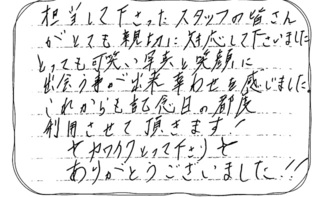 担当して下さったスタッフの皆さん
がとても親切に対応して下さいました
とっても可笑い写真と笑顔に
出会う事が出来幸わせを感じました。
これからも記念日の都度
利用させて頂きます！
カワイクとって下さり
ありがとうございました!!